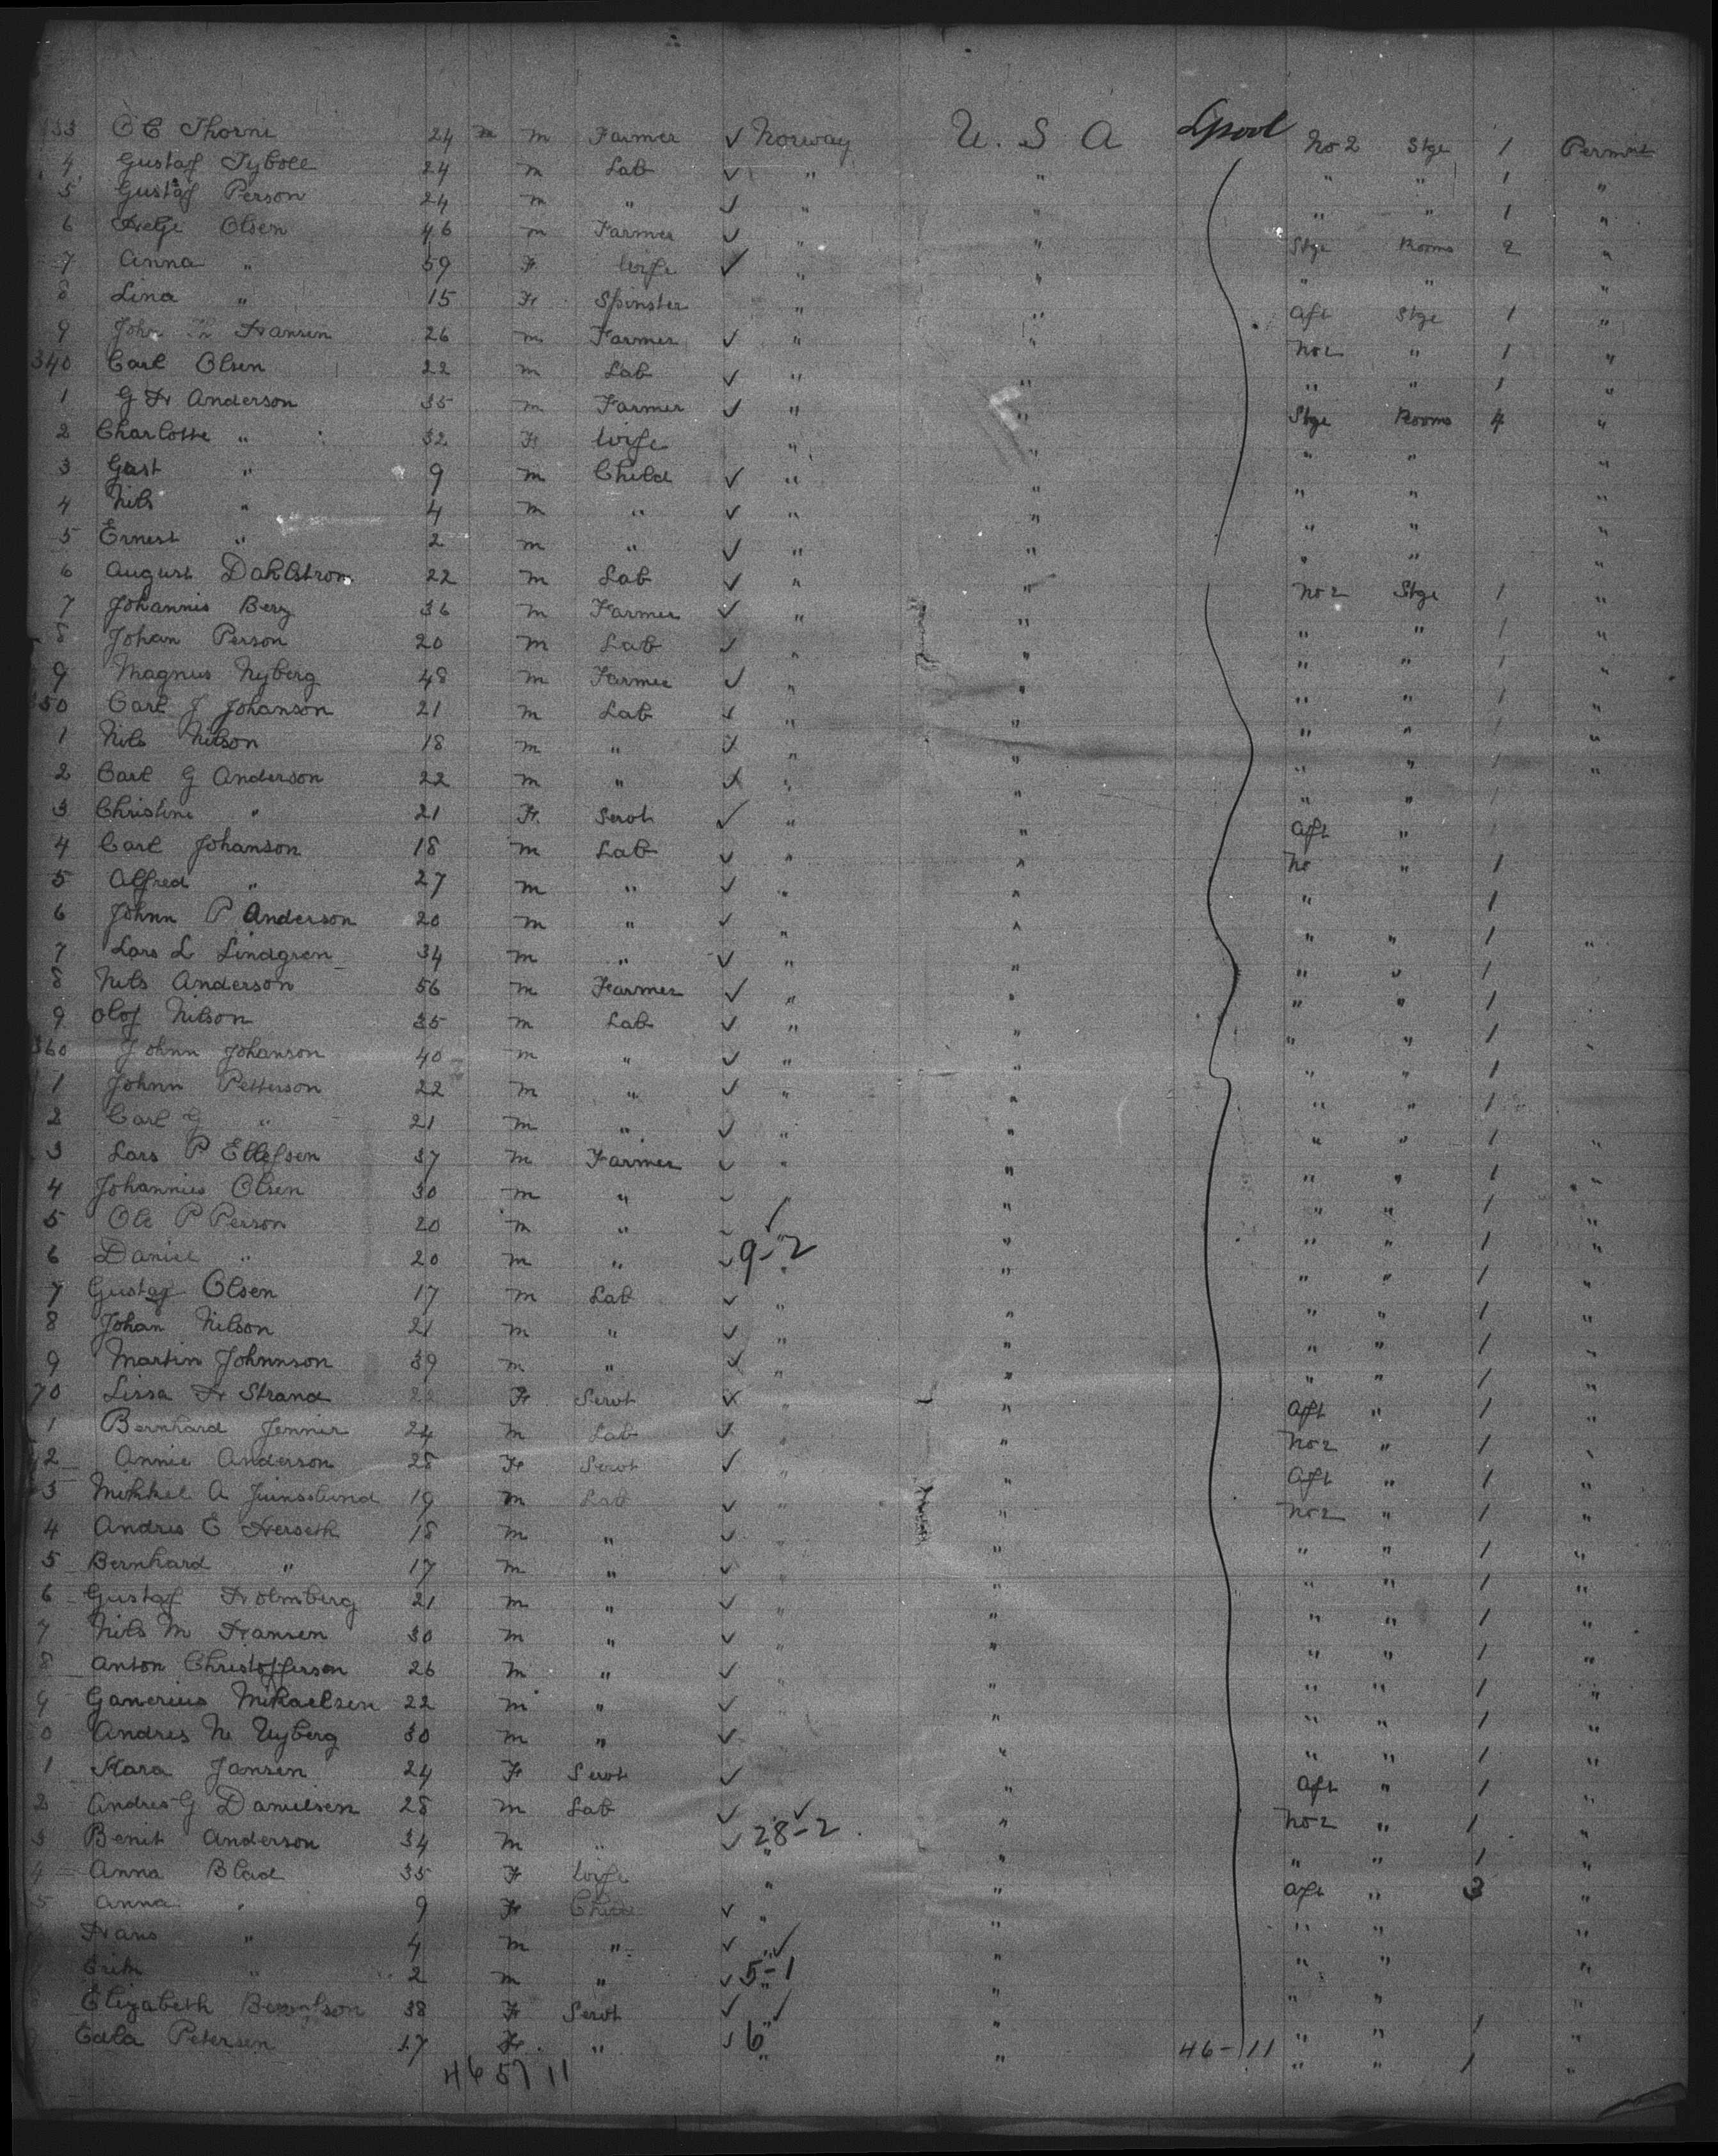 333 O C Thorni 24 m m Farmer ✓ Norway U. S A Lpool No 2 Stge 1 Permnt
4 Gustaf Tyboll 24 m Lab ✓ " " " " 1 "
5 Gustaf Person 24 m " ✓ " " " " 1 "
6 Helge Olsen 46 m Farmer ✓ " " Stge Rooms 2 "
7 Anna " 59 F Wife ✓ " " " " "
8 Lina " 15 F Spinster " " Aft Stge 1 "
9 John Hansen 26 m Farmer ✓ " " No 2 " 1 "
340 Carl Olsen 22 m Lab ✓ " " " " 1 "
1 G H Anderson 35 m Farmer ✓ " " Stge Rooms 4 "
2 Charlotte " 32 F Wife " " " " "
3 Gust " 9 m Child ✓ " " " " "
4 Nils " 4 m " ✓ " " " " "
5 Ernest " 2 m " ✓ " " " " "
6 August Dahlstrom 22 m Lab ✓ " " No 2 Stge 1 "
7 Johannis Berg 36 m Farmer ✓ " " " " 1 "
8 Johan Person 20 m Lab ✓ " " " " 1 "
9 Magnus Nyberg 48 m Farmer ✓ " " " " 1 "
350 Carl J Johanson 21 m Lab ✓ " " " " 1 "
1 Nils Nilson 18 m " ✓ " " " " 1 "
2 Carl G Anderson 22 m " ✓ " " " " 1
3 Christine " 21 F. Servt ✓ " " Aft " 1
4 Carl Johanson 18 m Lab ✓ " " No " 1
5 Alfred " 27 m " ✓ " " " 1
6 Johnn P Anderson 20 m " ✓ " " " " 1 "
7 Lars L Lindgren 34 m " ✓ " " " " 1
8 Nils Anderson 56 m Farmer ✓ " " " " 1
9 Olof Nilson 35 m Lab ✓ " " " " 1
360 Johnn Johanson 40 m " ✓ " " " " 1
1 Johnn Petterson 22 m " ✓ " " " " 1
2 Carl G " 21 m " ✓ " " " " 1 "
3 Lars P Ellefsen 37 m Farmer ✓ " " " " 1 "
4 Johannies Olsen 30 m " ✓ " " " 1 "
5 Ole P Person 20 m " ✓ " " " 1 "
6 Daniel " 20 m " ✓ 9-2 " " " 1 "
7 Gustaf Olsen 17 m Lab ✓ " " " " 1 "
8 Johan Nilson 21 m " ✓ " " " " 1 "
9 Martin Johnnson 39 m " ✓ " " " " 1 "
70 Lissa H Strand 22 F Servt ✓ " " Aft " 1 "
1 Bernhard Jennir 24 m Lab ✓ " " No 2 " 1 "
2 Annie Anderson 28 F Servt ✓ " " Aft " 1 "
3 Mikkel A 19 m Lab ✓ " " No 2 " 1 "
4 Andres E Herseth 18 m " ✓ " " " 1 "
5 Bernhard " 17 m " ✓ " " " " 1 "
6 Gustaf Holmberg 21 m " ✓ " " " " 1 "
7 Nils M Hansen 30 m " ✓ " " " " 1 "
8 Anton Christofferson 26 m " ✓ " " " " 1 "
9 Ganerius Mikaelsen 22 m " ✓ " " " 1 "
0 Andres N Nyberg 30 m " ✓ " " " 1 "
1 Kara Jansen 24 F Servt ✓ " Aft " 1 "
2 Andres G Danielsen 28 m Lab ✓ ✓ " No 2 " 1 "
3 Benit Anderson 34 m " ✓ 28-2 " " " 1 "
4 Anna Blad 35 F Wife " " Aft " 3 "
5 Anna " 9 F Child ✓ " " " " "
Hans " 4 m " ✓ " ✓ " " " "
Erik " 2 m " ✓ 5-1 " " " "
Elizabeth 38 F Servt ✓ ✓ " " " 1 "
Edla Petersen 17 F. " ✓ 6 " 46-11 " " 1 "
46 57 11